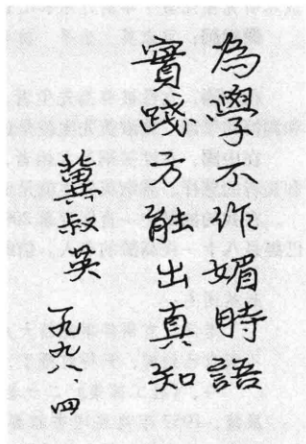 為學不作媚時語
實踐方能出真知
冀叔英 一九九八·四